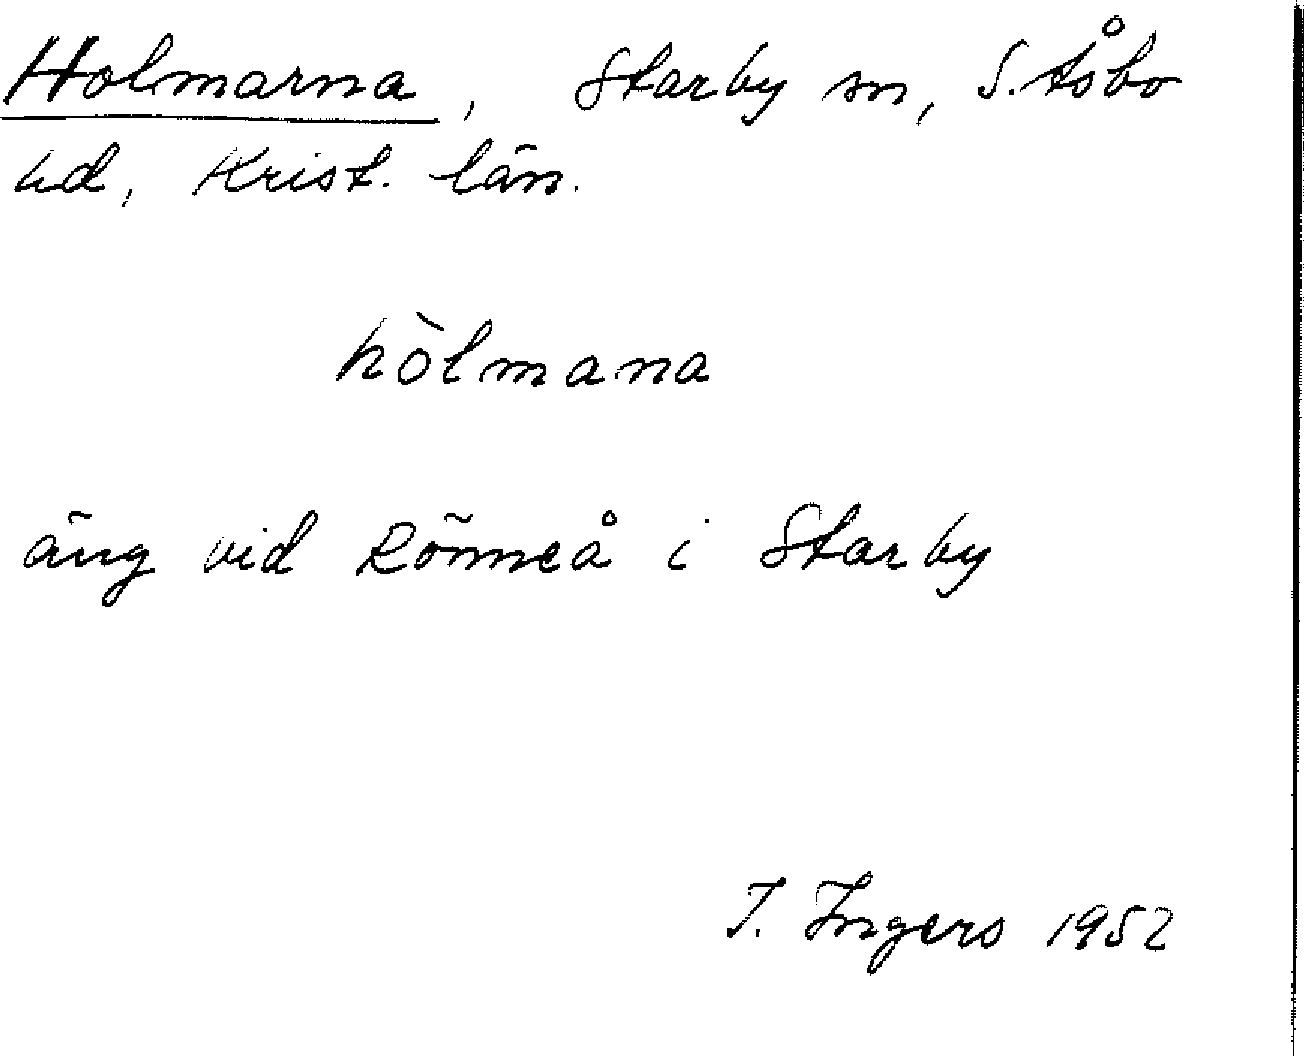 Holmarna, Starby sn, S. Åsbo
hd, Krist. län.
hòlmana
äng vid Rönneå i Starby
I. Ingers 1952